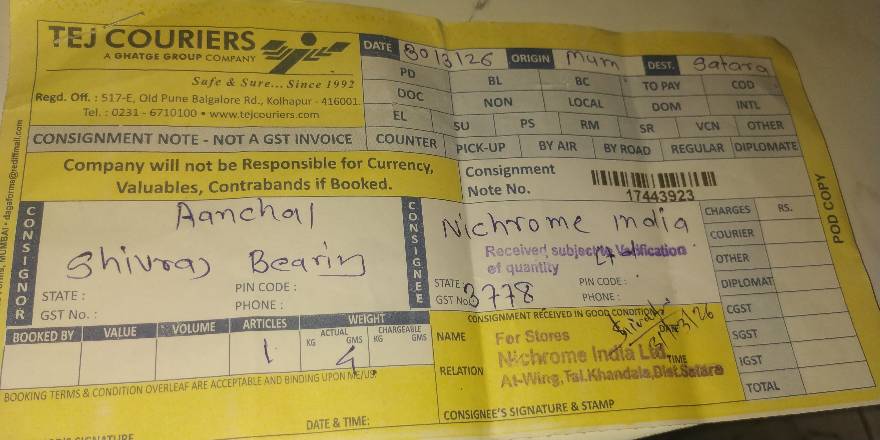 TEJ COURIERS
A GHATGE GROUP COMPANY
Safe & Sure... Since 1992
Regd. Off. : 517-E, Old Pune Balgalore Rd., Kolhapur - 416001.
Tel. : 0231 - 6710100 • www.tejcouriers.com
CONSIGNMENT NOTE - NOT A GST INVOICE
DATE 30/3/26 ORIGIN Mum DEST. Satara
PD BL BC TO PAY COD
DOC NON LOCAL DOM INTL
EL SU PS RM SR VCN OTHER
COUNTER PICK-UP BY AIR BY ROAD REGULAR DIPLOMATE
Company will not be Responsible for Currency,
Valuables, Contrabands if Booked.
Consignment
Note No.
17443923
CONSIGNOR
Aanchal
Shivraj Bearing
STATE : PIN CODE :
GST No. : PHONE :
CONSIGNEE
Nichrome India
Received subject verification
of quantity
STATE PIN CODE :
GST No 3778 PHONE :
CHARGES RS.
COURIER
OTHER
DIPLOMAT
CGST
SGST
IGST
TOTAL
POD COPY
BOOKED BY VALUE VOLUME ARTICLES WEIGHT
ACTUAL CHARGEABLE
KG GMS KG GMS
1 4
BOOKING TERMS & CONDITION OVERLEAF ARE ACCEPTABLE AND BINDING UPON ME/US
DATE & TIME:
CONSIGNMENT RECEIVED IN GOOD CONDITION
NAME DATE
RELATION TIME
For Stores
Nichrome India Ltd.
At-Wing, Tal.Khandala, Dist.Satara
CONSIGNEE'S SIGNATURE & STAMP
MUMBAI • dagaforms@rediffmail.com